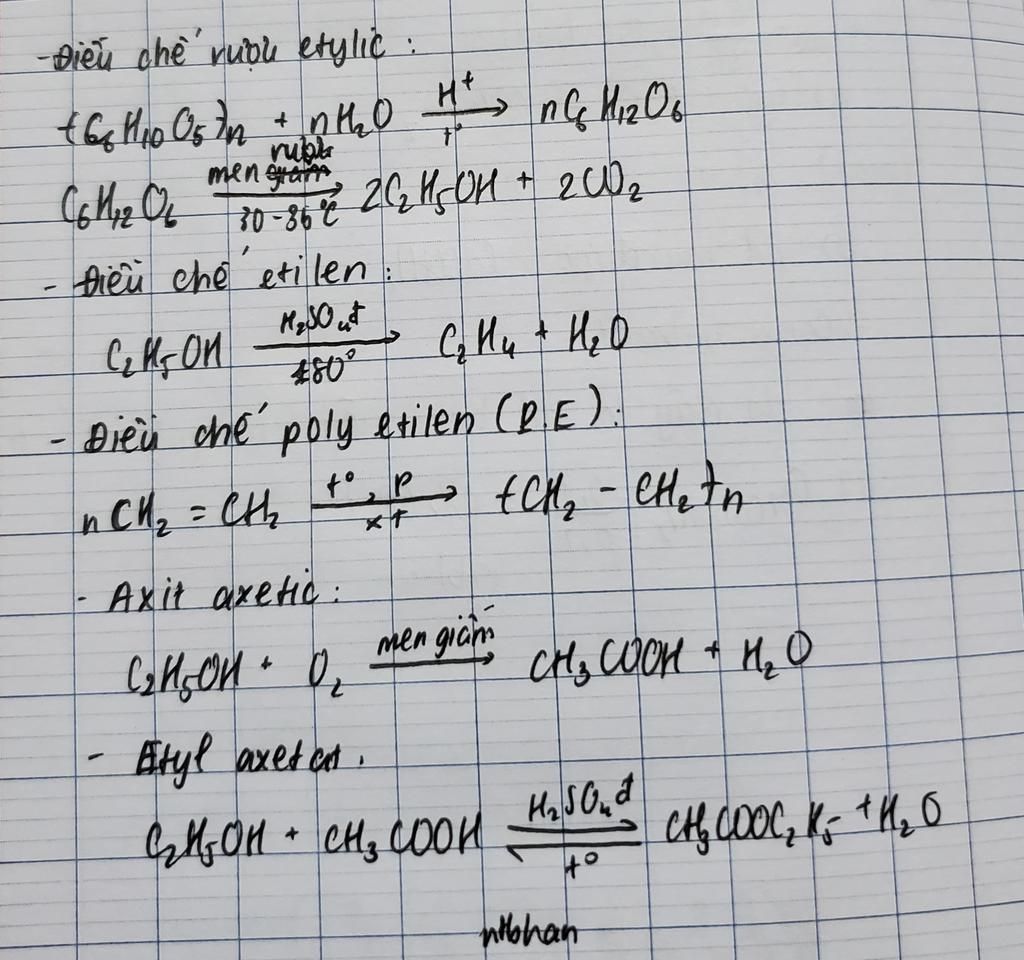 - Điều chế rượu etylic :
(C6H10O5)n + nH2O H+ t° → nC6H12O6
C6H12O6 men rượu 30-36°C → 2C2H5OH + 2CO2
- Điều chế etilen :
C2H5OH H2SO4đ 180° → C2H4 + H2O
- Điều chế poly etilen (PE) :
nCH2 = CH2 t°, P xt → (CH2 - CH2)n
- Axit axetic :
C2H5OH + O2 men giấm → CH3COOH + H2O
- Etyl axetat .
C2H5OH + CH3COOH H2SO4đ t° ⇌ CH3COOC2H5 + H2O